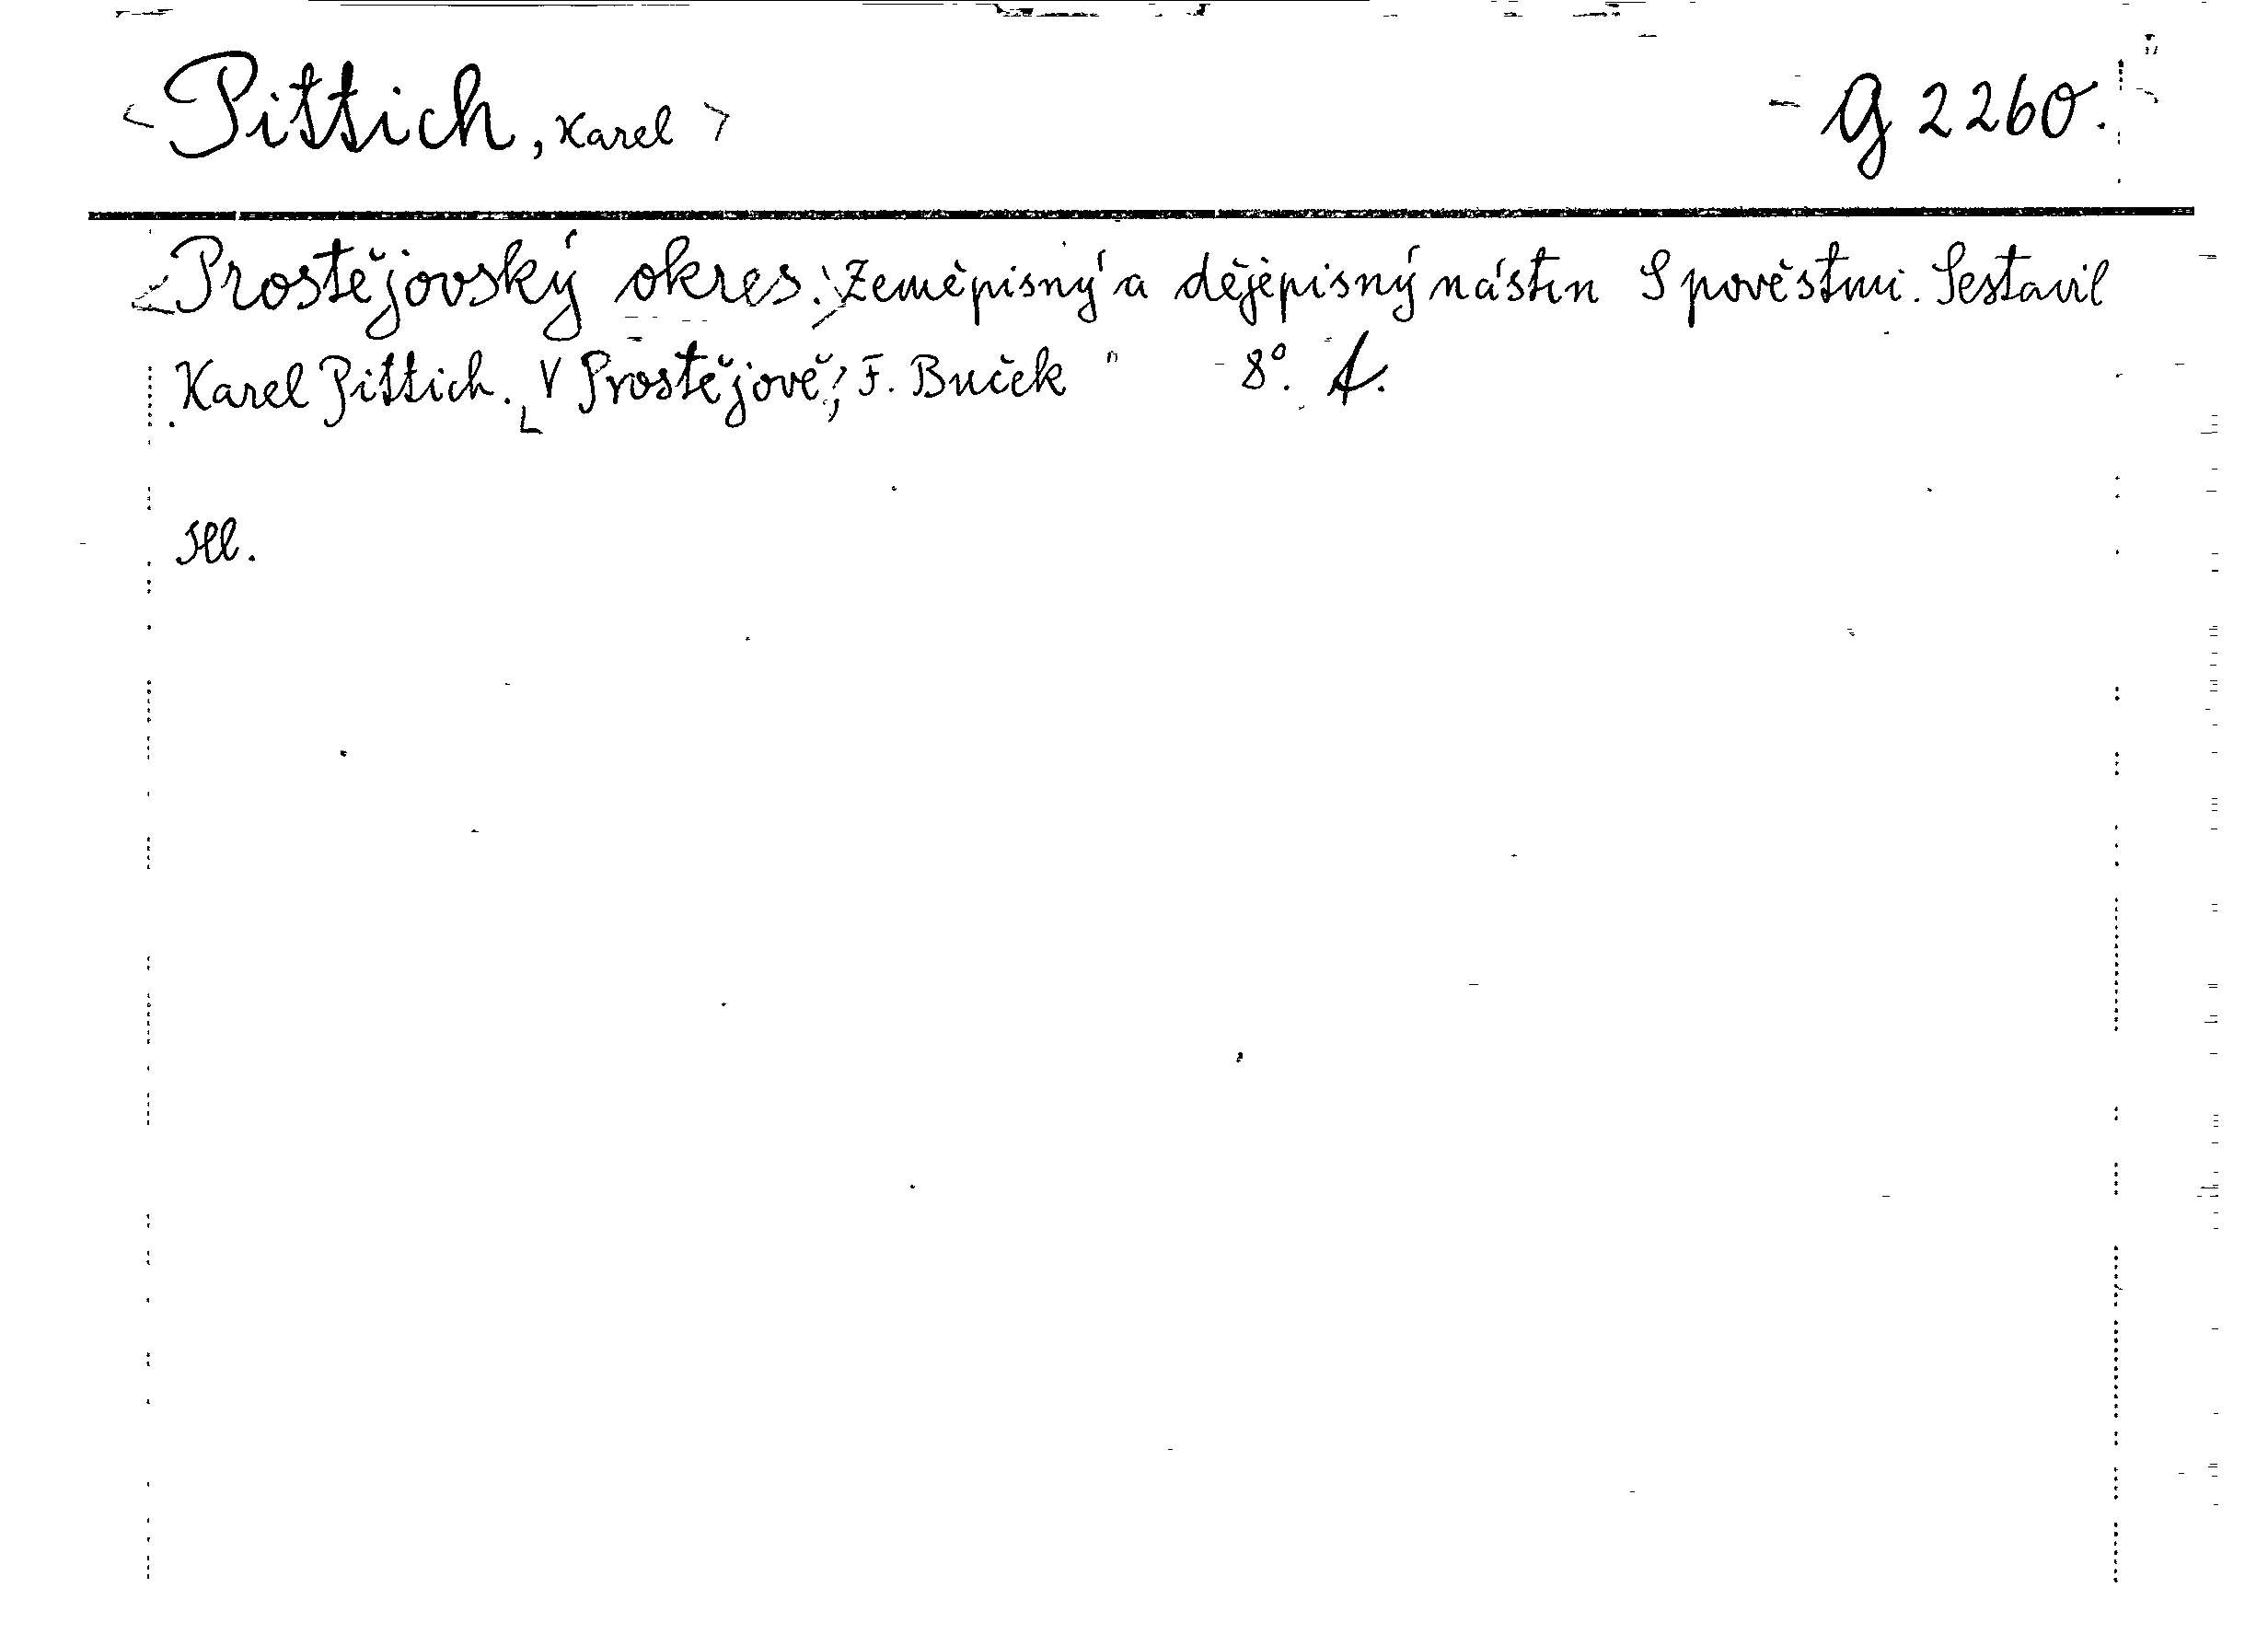 Pittich, Karel
G 2260.
Prostějovský okres. Zeměpisný a dějepisný nástin S pověstmi. Sestavil
Karel Pittich. V Prostějově, F. Buček " 8°. A.
Ill.